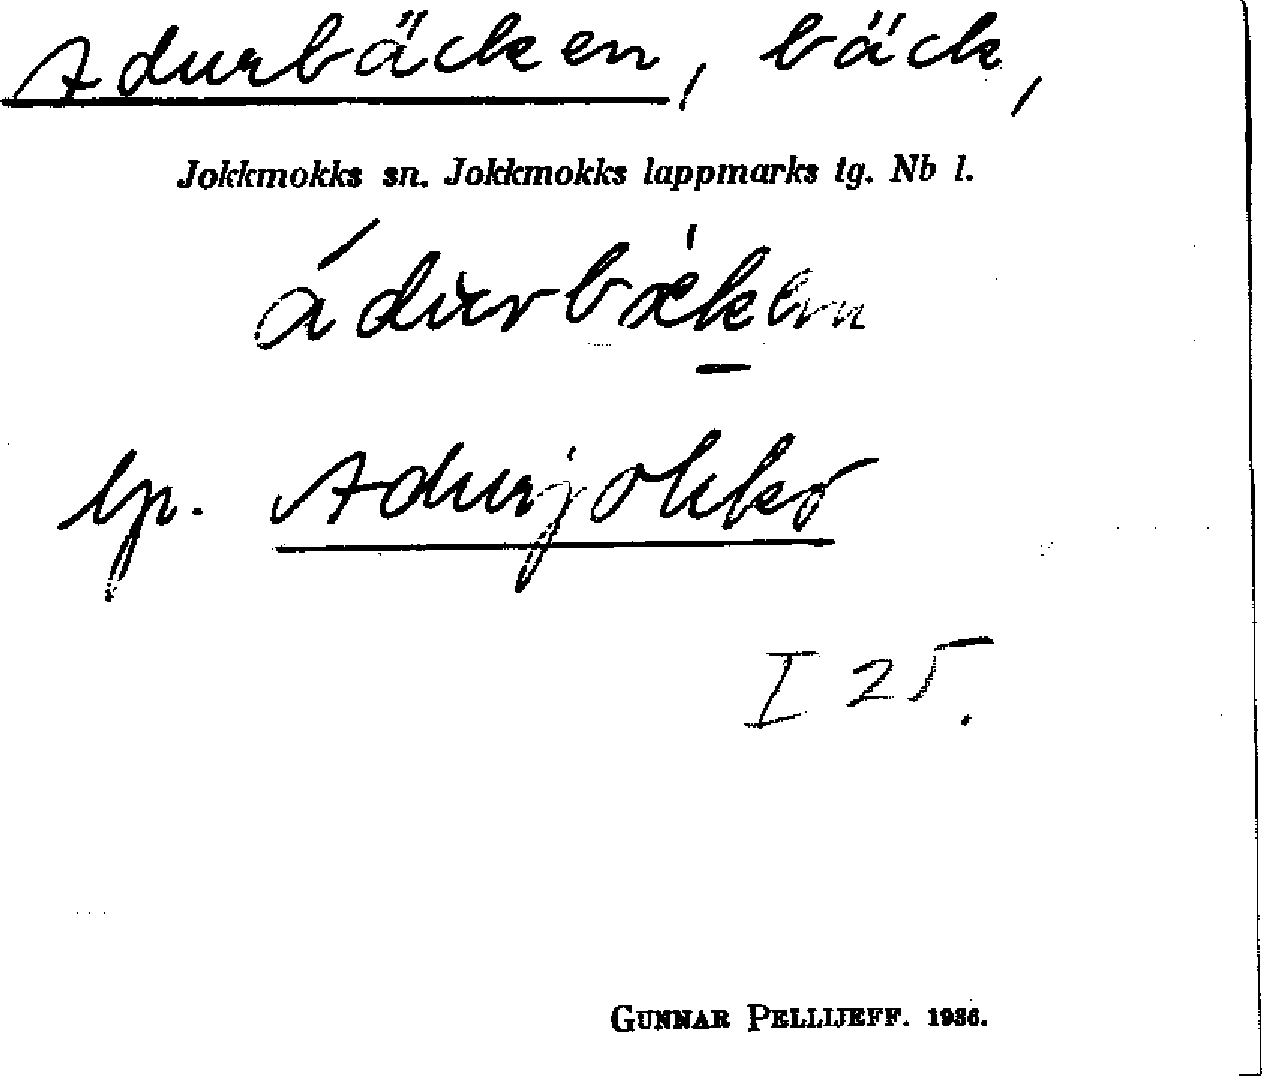 Adurbäcken, bäck,
Jokkmokks sn. Jokkmokks lappmarks tg. Nb l.
ádurbæken
lp. Adurjokko
I 25.
GUNNAR PELLIJEFF. 1936.